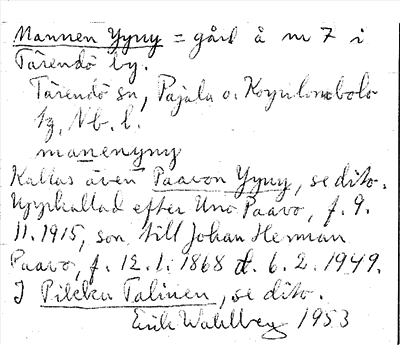 Mannen Yyny = gård å m 7 i
Tärendö by.
Tärendö sn, Pajala o. Korpilombolo
tg, Nb. l.
manenyny
Kallas även Paavon Yyny, se dito.
Uppkallad efter Uno Paavo, f. 9.
11.1915, son till Johan Herman
Paavo, f. 12.1.1868 d. 6.2.1949.
I Pikku Talinen, se dito.
Erik Wahlberg 1953